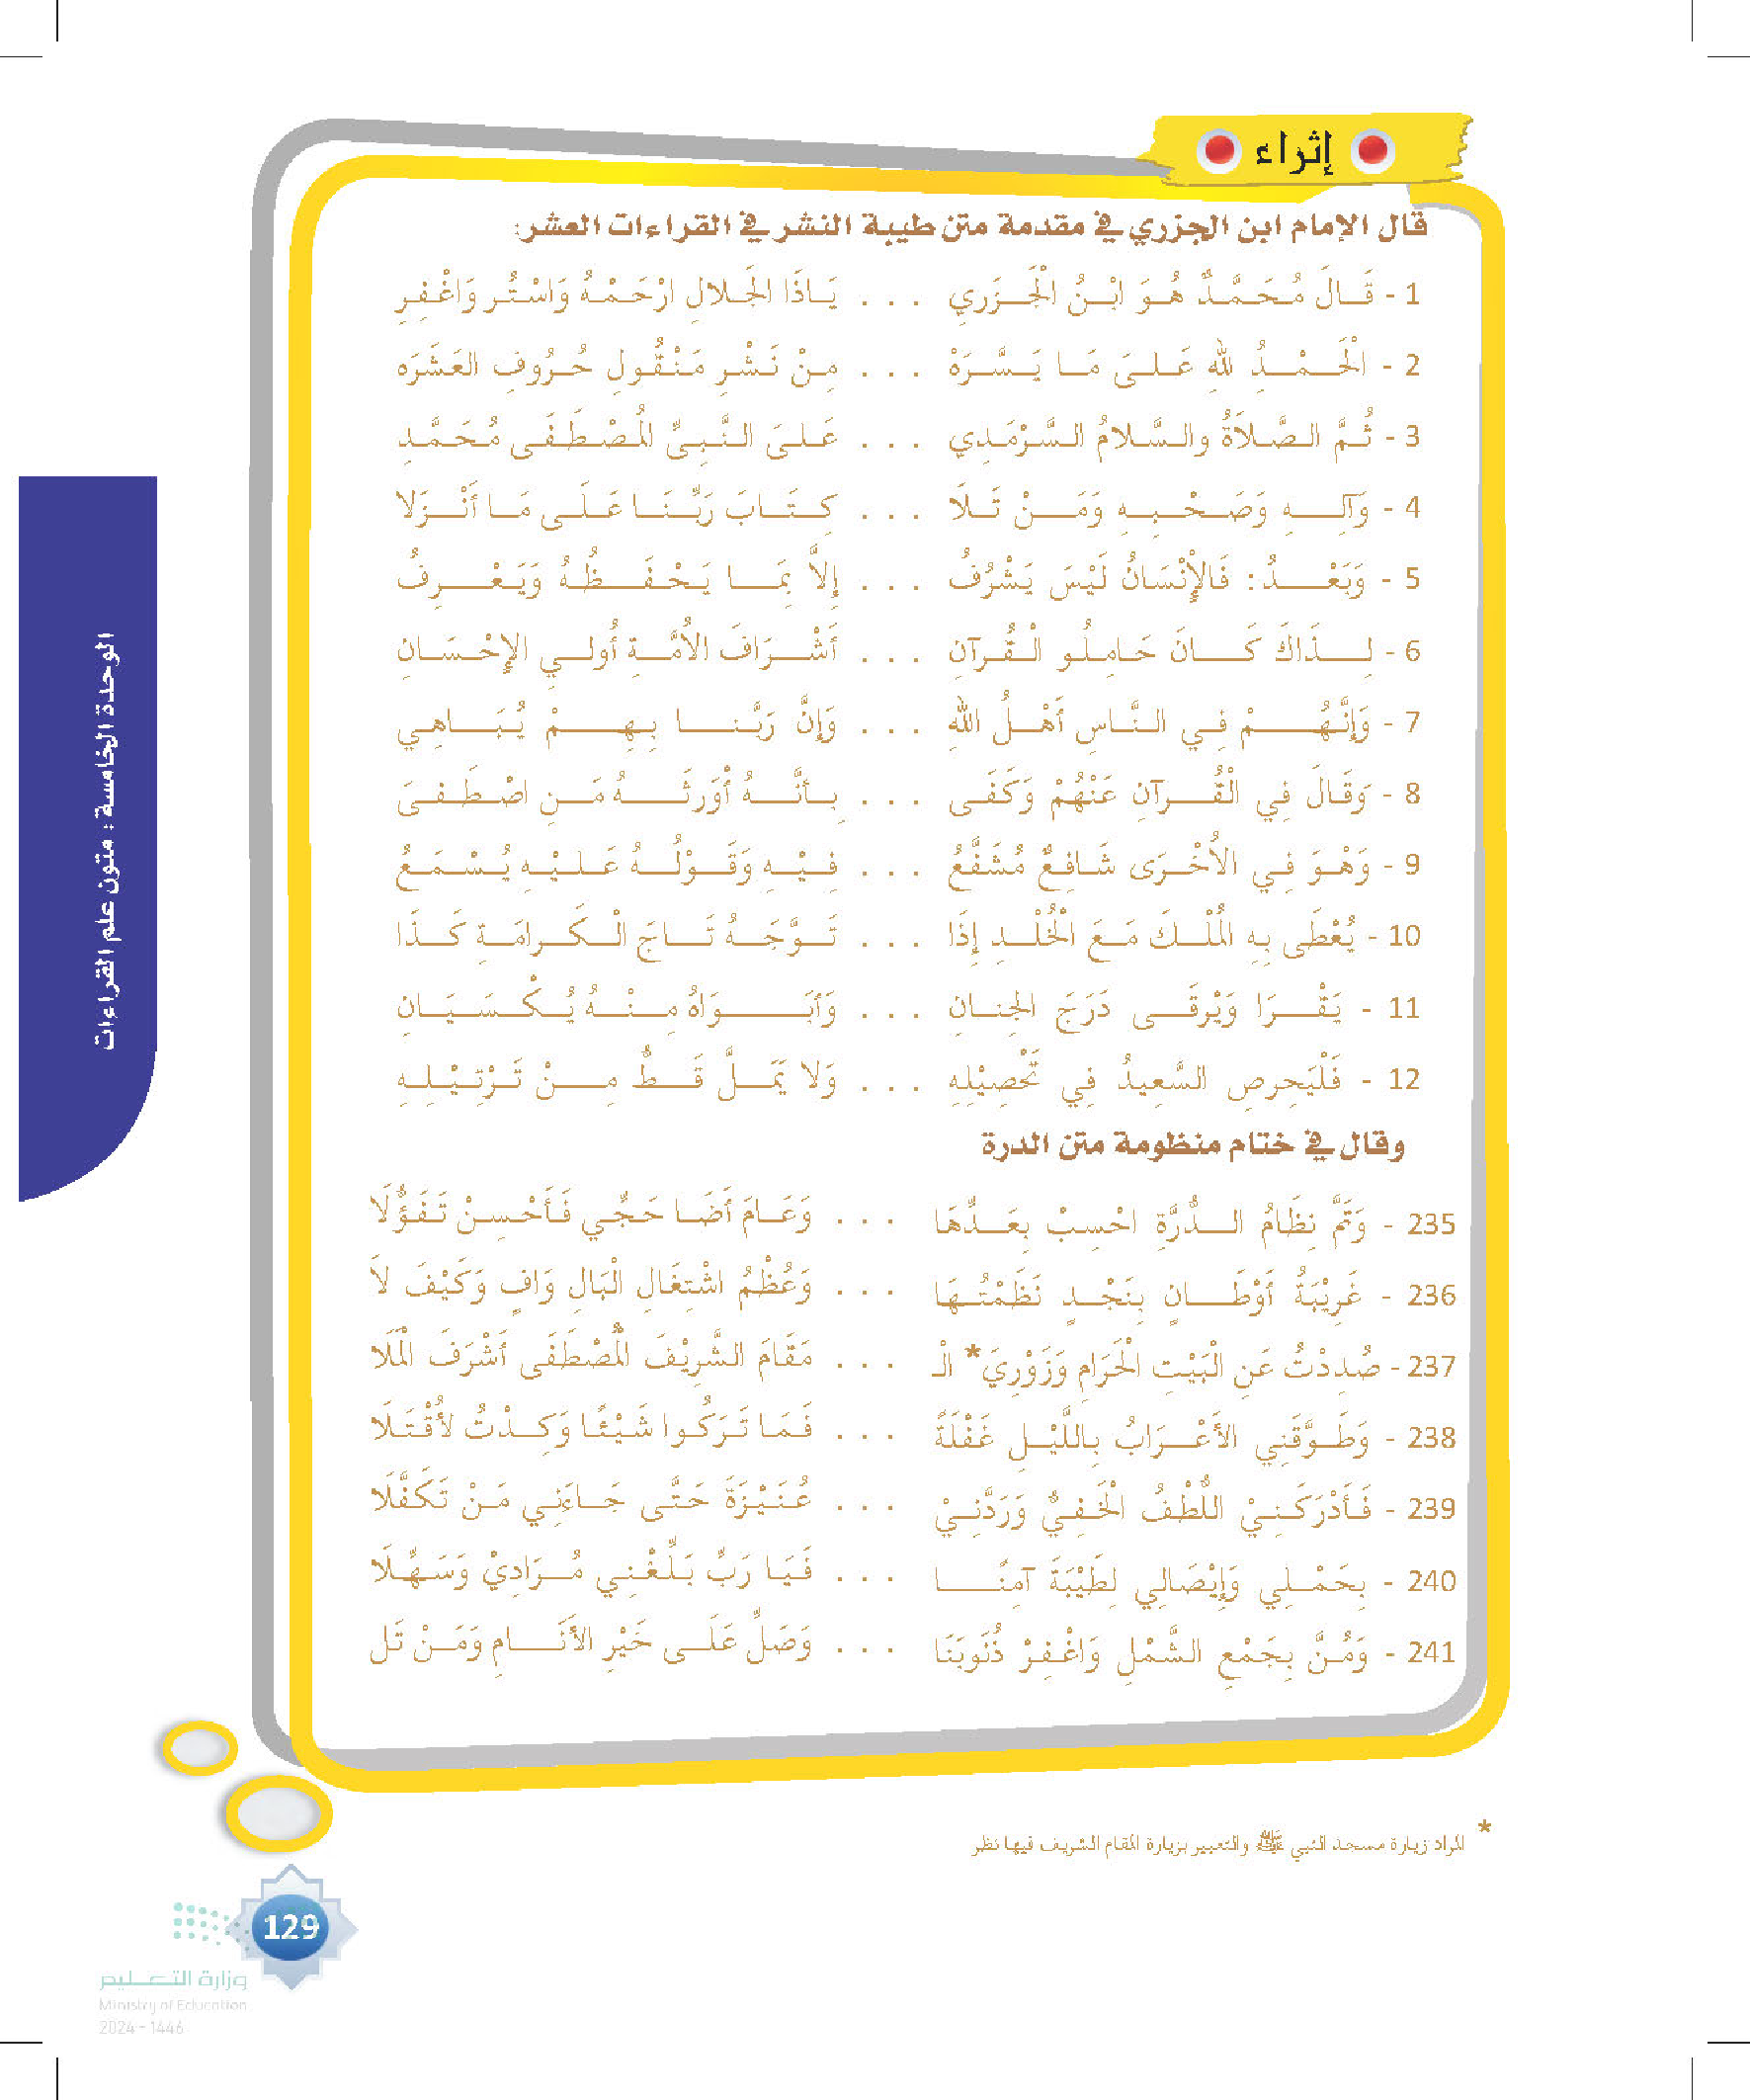 إثراء
قال الإمام ابن الجزري في مقدمة متن طيبة النشر في القراءات العشر:
1 - قَالَ مُحَمَّدٌ هُوَ ابْنُ الْجَزَرِي . . . يَاذَا الْجَلالِ ارْحَمْهُ وَاسْتُر وَاغْفِرِ
2 - الْحَمْدُ للهِ عَلىَ مَا يَسَّرَهْ . . . مِنْ نَشْرِ مَنْقُولِ حُرُوفِ العَشَرَه
3 - ثُمَّ الصَّلاَةُ والسَّلامُ السَّرْمَدِي . . . عَلىَ النَّبِىِّ المُصْطَفَى مُحَمَّدِ
4 - وَآلِهِ وَصَحْبِهِ وَمَنْ تَلَا . . . كِتَابَ رَبِّنَا عَلَى مَا أَنْزَلا
5 - وَبَعْدُ: فَالإِنْسَانُ لَيْسَ يَشْرُفُ . . . إِلاَّ بِمَا يَحْفَظُهُ وَيَعْرِفُ
6 - لِذَاكَ كَانَ حَامِلُو الْقُرآنِ . . . أَشْرَافَ الأُمَّةِ أُولِي الإِحْسَانِ
7 - وَإِنَّهُمْ فِي النَّاسِ أَهْلُ اللهِ . . . وَإِنَّ رَبَّنا بِهِمْ يُبَاهِي
8 - وَقَالَ فِي الْقُرآنِ عَنْهُمْ وَكَفَى . . . بِأَنَّهُ أَوْرَثَهُ مَنِ اصْطَفىَ
9 - وَهْوَ فِي الأُخْرَى شَافِعٌ مُشَفَّعُ . . . فِيْهِ وَقَوْلُهُ عَلَيْهِ يُسْمَعُ
10 - يُعْطَى بِهِ المُلْكَ مَعَ الْخُلْدِ إِذَا . . . تَوَّجَهُ تَاجَ الْكَرامَةِ كَذَا
11 - يَقْرَا وَيْرقَى دَرَجَ الجِنانِ . . . وَأَبَوَاهُ مِنْهُ يُكْسَيَانِ
12 - فَلْيَحرِصِ السَّعِيدُ فِي تَحْصِيْلِهِ . . . وَلا يَمَلَّ قَطُّ مِنْ تَرْتِيْلِهِ
وقال في ختام منظومة متن الدرة
235 - وَتَمَّ نِظَامُ الدُّرَّةِ احْسِبْ بِعَدِّهَا . . . وَعَامَ أَضَا حَجِّي فَأَحْسِنْ تَفَؤُّلَا
236 - غَرِيْبَةُ أَوْطَانٍ بِنَجْدٍ نَظَمْتُهَا . . . وَعُظْمُ اشْتِغَالِ الْبَالِ وَافٍ وَكَيْفَ لاَ
237 - صُدِدْتُ عَنِ الْبَيْتِ الْحَرَامِ وَزَوْرِيَ* الْـ . . . مَقَامَ الشَّرِيْفَ الْمُصْطَفَى أَشْرَفَ الْمَلَا
238 - وَطَوَّقَنِي الأَعْرَابُ بِاللَّيْلِ غَفْلَةً . . . فَمَا تَرَكُوا شَيْئًا وَكِدْتُ لأُقْتَلَا
239 - فَأَدْرَكَنِيْ اللُّطْفُ الْخَفِيُّ وَرَدَّنِيْ . . . عُنَيْزَةَ حَتَّى جَاءَنِي مَنْ تَكَفَّلَا
240 - بِحَمْلِي وَإِيْصَالِي لِطَيْبَةَ آمِنًا . . . فَيَا رَبِّ بَلِّغْنِي مُرَادِيْ وَسَهِّلَا
241 - وَمُنَّ بِجَمْعِ الشَّمْلِ وَاغْفِرْ ذُنُوبَنَا . . . وَصَلِّ عَلَى خَيْرِ الأَنَامِ وَمَنْ تَل
* المراد زيارة مسجد النبي ﷺ والتعبير بزيارة المقام الشريف فيها نظر
الوحدة الخامسة : متون علم القراءات
129
وزارة التعليم
Ministry of Education
2024 - 1446